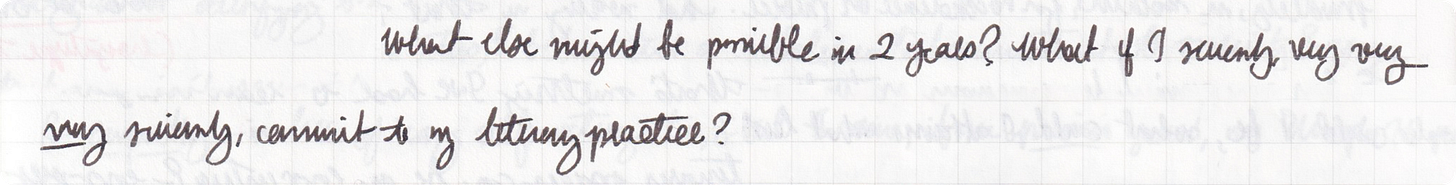 What else might be possible in 2 years? What if I seriously, very very
very seriously, commit to my literary practice?